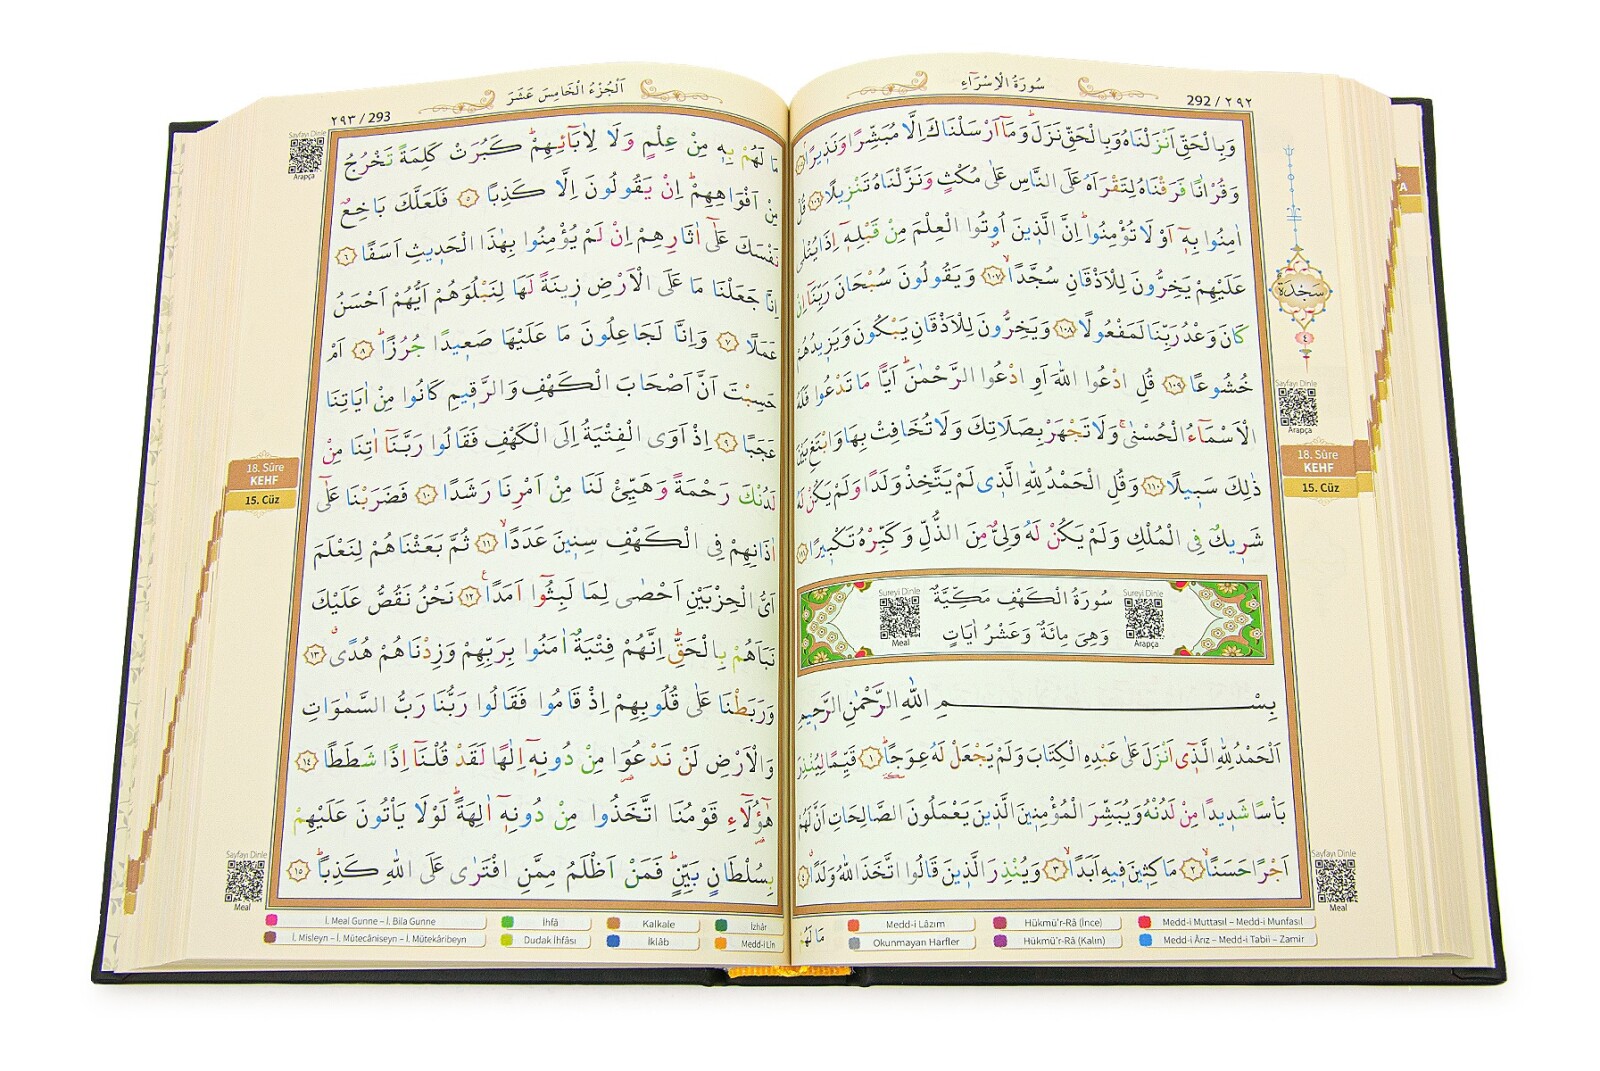 سُورَةُ الْاِسْرَٓاءِ
292 / ٢٩٢
وَبِالْحَقِّ اَنْزَلْنَاهُ وَبِالْحَقِّ نَزَلَۜ وَمَٓا اَرْسَلْنَاكَ اِلَّا مُبَشِّرًا وَنَذِيرًاۢ
وَقُرْاٰنًا فَرَقْنَاهُ لِتَقْرَاَهُ عَلَى النَّاسِ عَلٰى مُكْثٍ وَنَزَّلْنَاهُ تَنْزِيلًا ﴿١٠٦﴾ قُلْ
اٰمِنُوا بِهٖٓ اَوْ لَا تُؤْمِنُواۜ اِنَّ الَّذِينَ اُو۫تُوا الْعِلْمَ مِنْ قَبْلِهٖٓ اِذَا يُتْلٰى
عَلَيْهِمْ يَخِرُّونَ لِلْاَذْقَانِ سُجَّدًاۙ ﴿١٠٧﴾ وَيَقُولُونَ سُبْحَانَ رَبِّنَٓا اِنْ
كَانَ وَعْدُ رَبِّنَا لَمَفْعُولًا ﴿١٠٨﴾ وَيَخِرُّونَ لِلْاَذْقَانِ يَبْكُونَ وَيَزِيدُهُمْ
خُشُوعًا ﴿١٠٩﴾ قُلِ ادْعُوا اللّٰهَ اَوِ ادْعُوا الرَّحْمٰنَۜ اَيًّا مَا تَدْعُوا فَلَهُ
الْاَسْمَٓاءُ الْحُسْنٰىۚ وَلَا تَجْهَرْ بِصَلَاتِكَ وَلَا تُخَافِتْ بِهَا وَابْتَغِ بَيْنَ
ذٰلِكَ سَبِيلًا ﴿١١٠﴾ وَقُلِ الْحَمْدُ لِلّٰهِ الَّذِى لَمْ يَتَّخِذْ وَلَدًا وَلَمْ يَكُنْ لَهُ
شَرِيكٌ فِى الْمُلْكِ وَلَمْ يَكُنْ لَهُ وَلِىٌّ مِنَ الذُّلِّ وَكَبِّرْهُ تَكْبِيرًا ﴿١١١﴾
سُورَةُ الْكَهْفِ مَكِّيَّةٌ
وَهِىَ مِائَةٌ وَعَشْرُ اٰيَاتٍ
Sureyi Dinle
Meal
Sureyi Dinle
Arapça
بِسْمِ اللّٰهِ الرَّحْمٰنِ الرَّحِيمِ
اَلْحَمْدُ لِلّٰهِ الَّذِٓى اَنْزَلَ عَلٰى عَبْدِهِ الْكِتَابَ وَلَمْ يَجْعَلْ لَهُ عِوَجًاۜ ﴿١﴾ قَيِّمًا لِيُنْذِرَ
بَاْسًا شَدِيدًا مِنْ لَدُنْهُ وَيُبَشِّرَ الْمُؤْمِنِينَ الَّذِينَ يَعْمَلُونَ الصَّالِحَاتِ اَنَّ لَهُمْ
اَجْرًا حَسَنًاۙ ﴿٢﴾ مَاكِثِينَ فِيهِ اَبَدًاۙ ﴿٣﴾ وَيُنْذِرَ الَّذِينَ قَالُوا اتَّخَذَ اللّٰهُ وَلَدًاۗ ﴿٤﴾
مَا لَهُمْ
سَجْدَة
٤
Sayfayı Dinle
Arapça
18. Sûre
KEHF
15. Cüz
Sayfayı Dinle
Meal
Medd-i Lâzım
Hükmü'r-Râ (İnce)
Medd-i Muttasıl – Medd-i Munfasıl
Okunmayan Harfler
Hükmü'r-Râ (Kalın)
Medd-i Ârız – Medd-i Tabiî – Zamir
اَلْجُزْءُ الْخَامِسَ عَشَرَ
٢٩٣ / 293
مَا لَهُمْ بِهٖ مِنْ عِلْمٍ وَلَا لِاٰبَٓائِهِمْۜ كَبُرَتْ كَلِمَةً تَخْرُجُ
مِنْ اَفْوَاهِهِمْۜ اِنْ يَقُولُونَ اِلَّا كَذِبًا ﴿٥﴾ فَلَعَلَّكَ بَاخِعٌ
نَفْسَكَ عَلٰٓى اٰثَارِهِمْ اِنْ لَمْ يُؤْمِنُوا بِهٰذَا الْحَدِيثِ اَسَفًا ﴿٦﴾
اِنَّا جَعَلْنَا مَا عَلَى الْاَرْضِ زِينَةً لَهَا لِنَبْلُوَهُمْ اَيُّهُمْ اَحْسَنُ
عَمَلًا ﴿٧﴾ وَاِنَّا لَجَاعِلُونَ مَا عَلَيْهَا صَعِيدًا جُرُزًاۜ ﴿٨﴾ اَمْ
حَسِبْتَ اَنَّ اَصْحَابَ الْكَهْفِ وَالرَّقِيمِ كَانُوا مِنْ اٰيَاتِنَا
عَجَبًا ﴿٩﴾ اِذْ اَوَى الْفِتْيَةُ اِلَى الْكَهْفِ فَقَالُوا رَبَّنَٓا اٰتِنَا مِنْ
لَدُنْكَ رَحْمَةً وَهَيِّئْ لَنَا مِنْ اَمْرِنَا رَشَدًا ﴿١٠﴾ فَضَرَبْنَا عَلٰٓى
اٰذَانِهِمْ فِى الْكَهْفِ سِنِينَ عَدَدًاۙ ﴿١١﴾ ثُمَّ بَعَثْنَاهُمْ لِنَعْلَمَ
اَىُّ الْحِزْبَيْنِ اَحْصٰى لِمَا لَبِثُٓوا اَمَدًاۚ ﴿١٢﴾ نَحْنُ نَقُصُّ عَلَيْكَ
نَبَاَهُمْ بِالْحَقِّۜ اِنَّهُمْ فِتْيَةٌ اٰمَنُوا بِرَبِّهِمْ وَزِدْنَاهُمْ هُدًىۗ ﴿١٣﴾
وَرَبَطْنَا عَلٰى قُلُوبِهِمْ اِذْ قَامُوا فَقَالُوا رَبُّنَا رَبُّ السَّمٰوَاتِ
وَالْاَرْضِ لَنْ نَدْعُوَا مِنْ دُونِهٖٓ اِلٰهًا لَقَدْ قُلْنَٓا اِذًا شَطَطًا ﴿١٤﴾
هٰٓؤُلَٓاءِ قَوْمُنَا اتَّخَذُوا مِنْ دُونِهٖٓ اٰلِهَةًۜ لَوْلَا يَاْتُونَ عَلَيْهِمْ
بِسُلْطَانٍ بَيِّنٍۜ فَمَنْ اَظْلَمُ مِمَّنِ افْتَرٰى عَلَى اللّٰهِ كَذِبًاۜ ﴿١٥﴾
Sayfayı Dinle
Arapça
18. Sûre
KEHF
15. Cüz
Sayfayı Dinle
Meal
İ. Meal Gunne – İ. Bila Gunne
İhfâ
Kalkale
İzhâr
İ. Misleyn – İ. Mütecâniseyn – İ. Mütekâribeyn
Dudak İhfâsı
İklâb
Medd-i Lîn